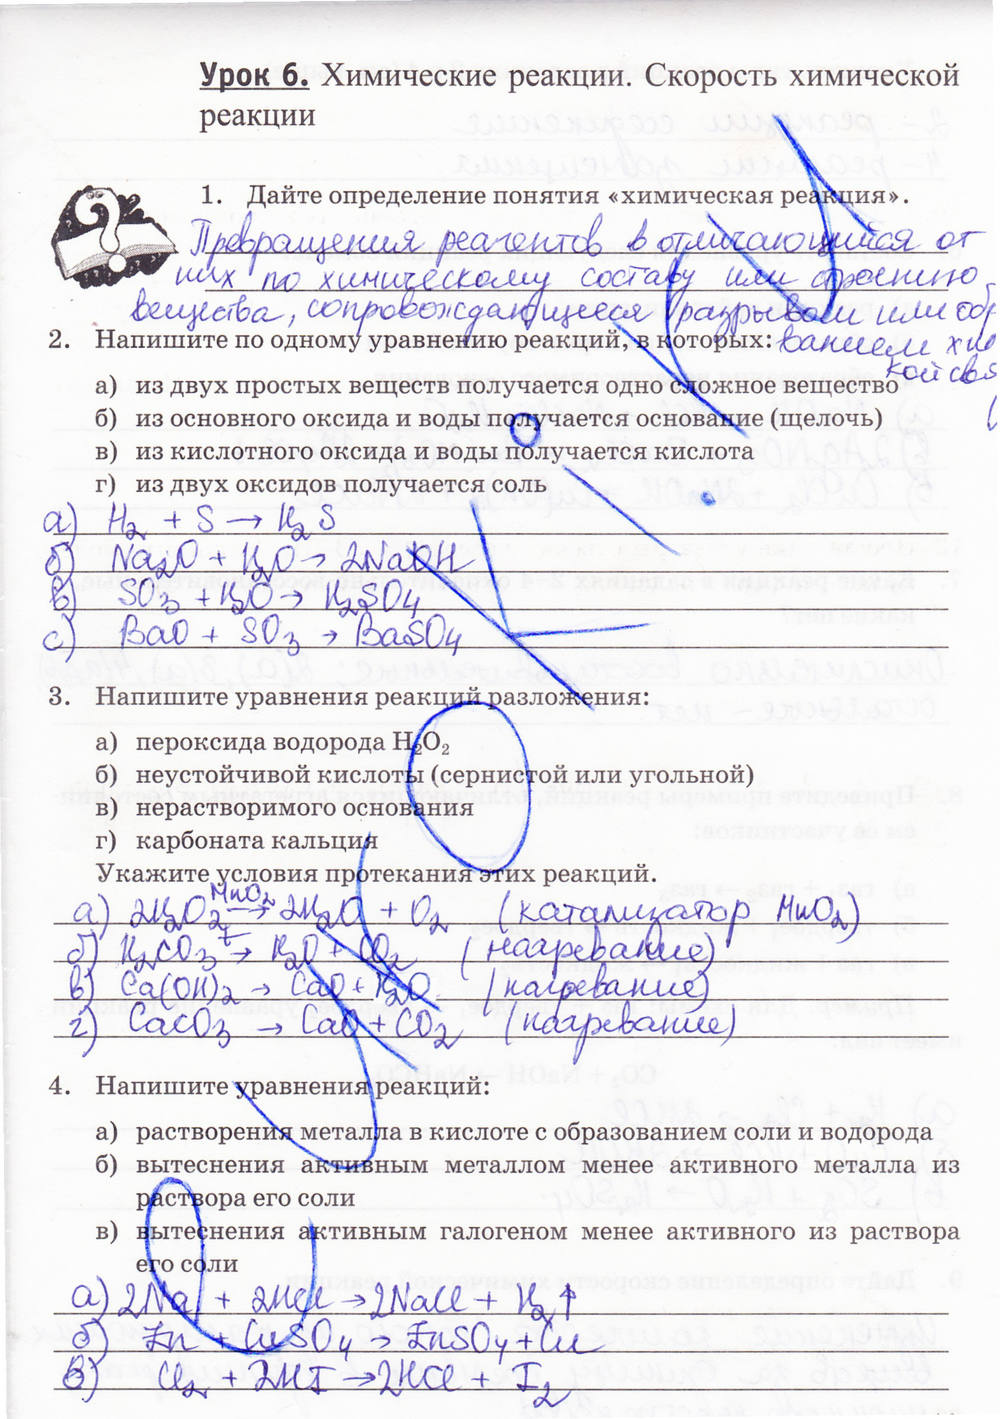 Урок 6. Химические реакции. Скорость химической
реакции
1. Дайте определение понятия «химическая реакция».
Превращения реагентов в отличающийся от
них по химическому составу или строению
вещества, сопровождающееся разрывом или обр
2. Напишите по одному уравнению реакций, в которых:
ванием хи
кой свя
а) из двух простых веществ получается одно сложное вещество
б) из основного оксида и воды получается основание (щелочь)
в) из кислотного оксида и воды получается кислота
г) из двух оксидов получается соль
а) H₂ + S → H₂S
б) Na₂O + H₂O → 2NaOH
в) SO₃ + H₂O → H₂SO₄
с) BaO + SO₃ → BaSO₄
3. Напишите уравнения реакций разложения:
а) пероксида водорода H₂O₂
б) неустойчивой кислоты (сернистой или угольной)
в) нерастворимого основания
г) карбоната кальция
Укажите условия протекания этих реакций.
MnO₂
а) 2H₂O₂ → 2H₂O + O₂ (катализатор MnO₂)
t
б) H₂CO₃ → H₂O + CO₂ (нагревание)
в) Ca(OH)₂ → CaO + H₂O (нагревание)
г) CaCO₃ → CaO + CO₂ (нагревание)
4. Напишите уравнения реакций:
а) растворения металла в кислоте с образованием соли и водорода
б) вытеснения активным металлом менее активного металла из
раствора его соли
в) вытеснения активным галогеном менее активного из раствора
его соли
а) 2Na + 2HCl → 2NaCl + H₂↑
б) Zn + CuSO₄ → ZnSO₄ + Cu
в) Cl₂ + 2HI → 2HCl + I₂